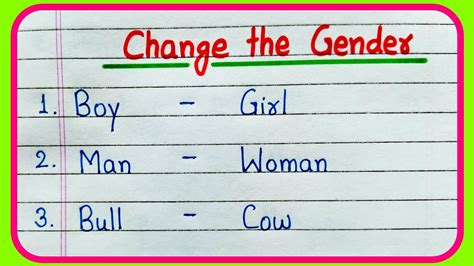 Change the Gender
1. Boy - Girl
2. Man - Woman
3. Bull - Cow